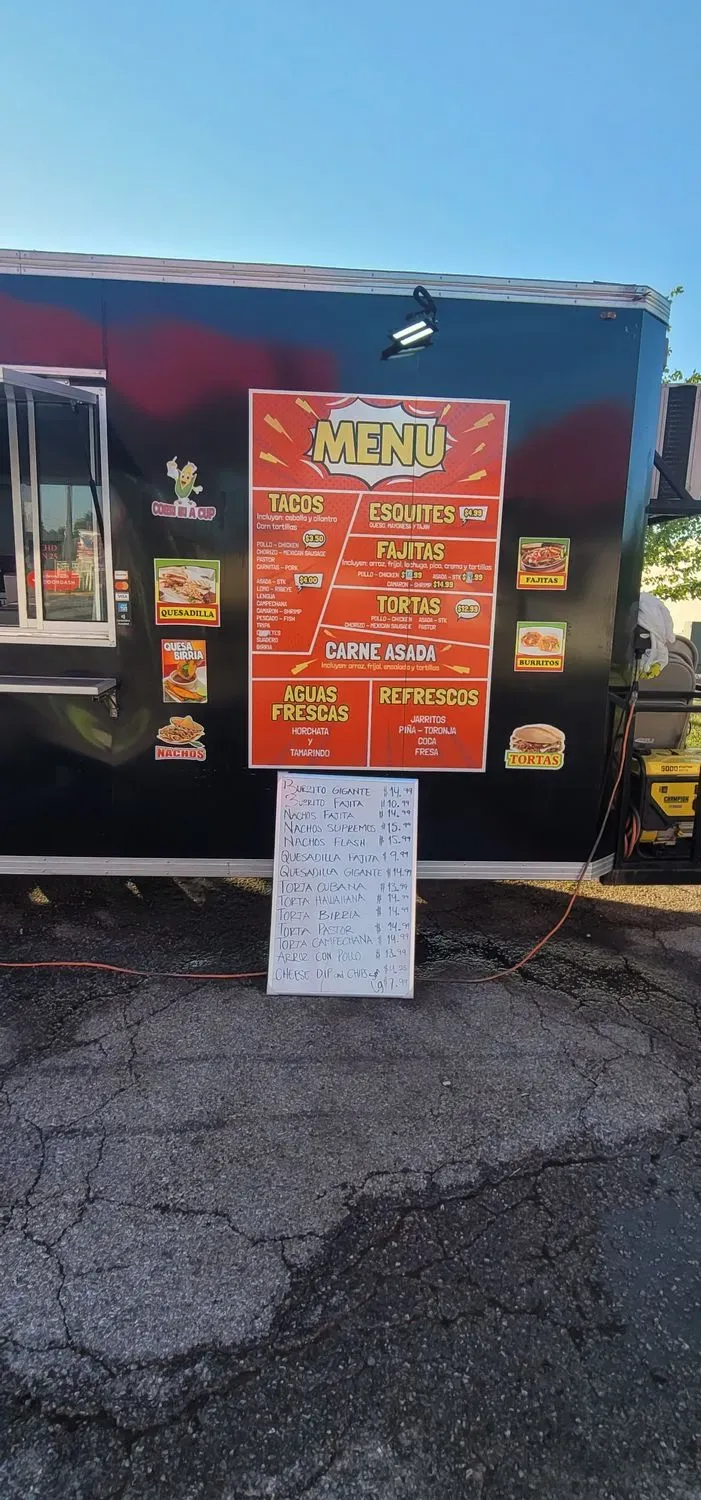 MENU
TACOS
Incluyen: cebolla y cilantro
Corn tortillas
$3.50
POLLO - CHICKEN
CHORIZO - MEXICAN SAUSAGE
PASTOR
CARNITAS - PORK
$4.00
ASADA - STK
LOMO - RIBEYE
LENGUA
CAMPECHANA
CAMARON - SHRIMP
PESCADO - FISH
TRIPA
SUADERO
BIRRIA
ESQUITES $4.99
QUESO, MAYONESA Y TAJIN
FAJITAS
Incluyen: arroz, frijol, lechuga, pico, crema y tortillas
POLLO - CHICKEN ASADA - STK
CAMARON - SHRIMP $14.99
TORTAS $12.99
POLLO - CHICKEN ASADA - STK
CHORIZO - MEXICAN SAUSAGE PASTOR
CARNE ASADA
Incluyen: arroz, frijol, ensalada y tortillas
AGUAS
FRESCAS
HORCHATA
Y
TAMARINDO
REFRESCOS
JARRITOS
PIÑA - TORONJA
COCA
FRESA
CORN IN A CUP
QUESADILLA
QUESA
BIRRIA
NACHOS
FAJITAS
BURRITOS
TORTAS
DOORDASH
VISA
BURRITO GIGANTE $14.99
BURRITO FAJITA $10.99
NACHOS FAJITA $14.99
NACHOS SUPREMOS $15.99
NACHOS FLASH $15.99
QUESADILLA FAJITA $9.99
QUESADILLA GIGANTE $14.99
TORTA CUBANA $13.99
TORTA HAWAIIANA $14.99
TORTA BIRRIA $14.99
TORTA PASTOR $14.99
TORTA CAMPECHANA $14.99
ARROZ CON POLLO $13.99
CHEESE DIP and CHIPS $4.25
Lg $7.99
5000
CHAMPION